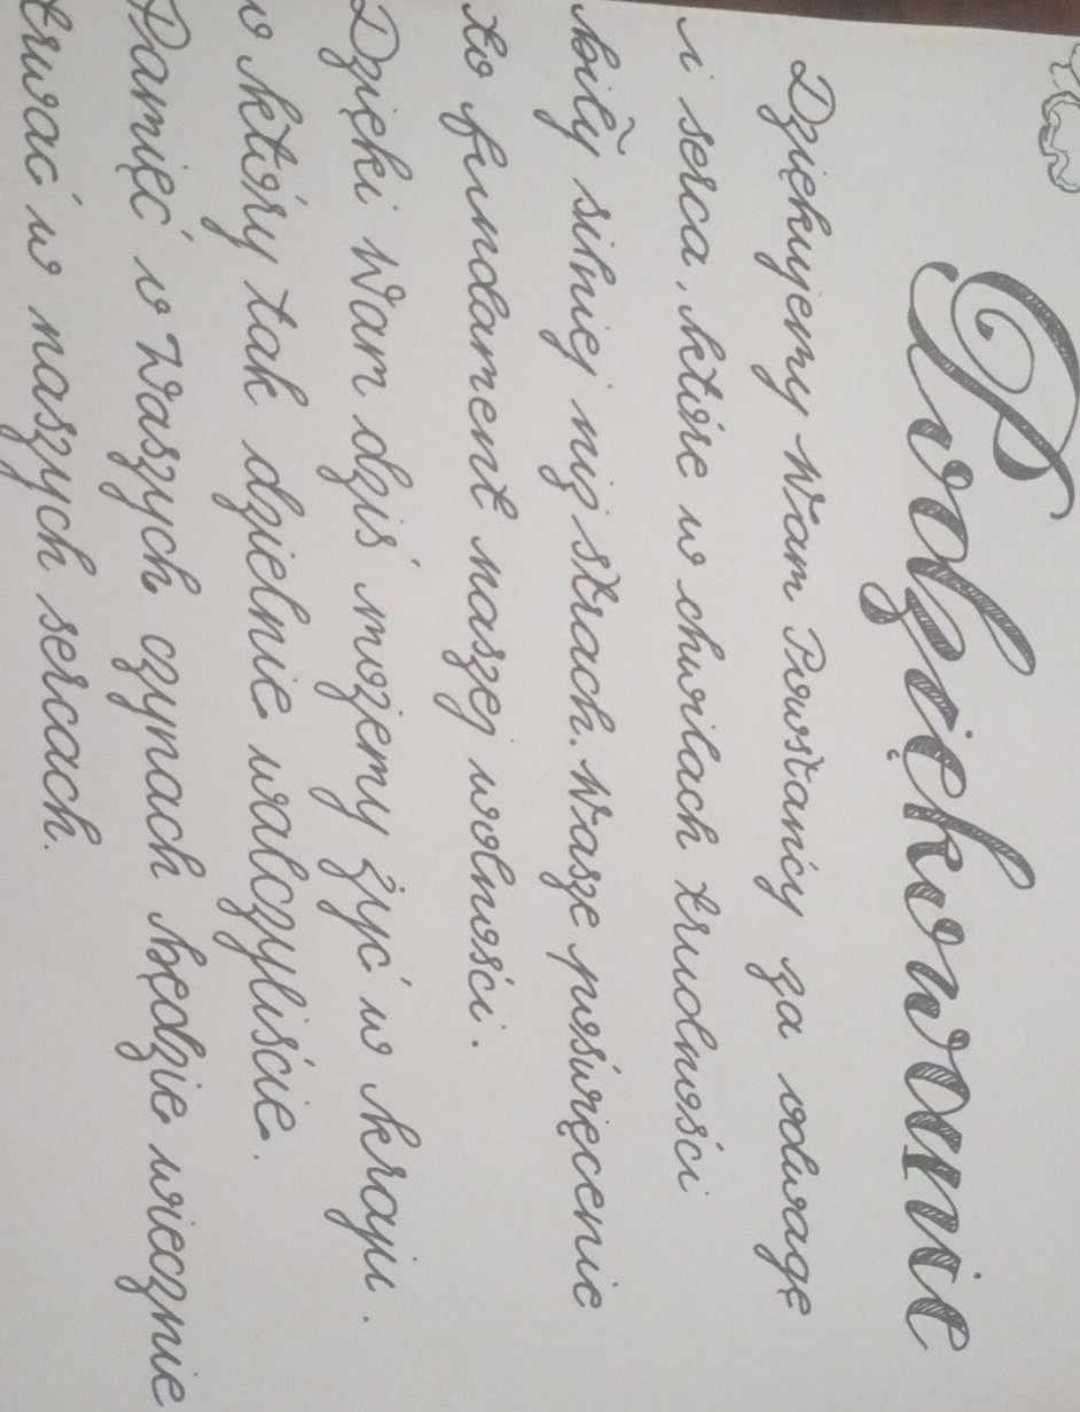 Podziękowanie
Dziękujemy Wam Powstańcy za odwagę
i serca, które w chwilach trudności
biły silniej niż strach. Wasze poświęcenie
to fundament naszej wolności.
Dzięki Wam dziś możemy żyć w kraju.
o który tak dzielnie walczyliście.
Pamięć o Waszych czynach będzie wiecznie
trwać w naszych sercach.